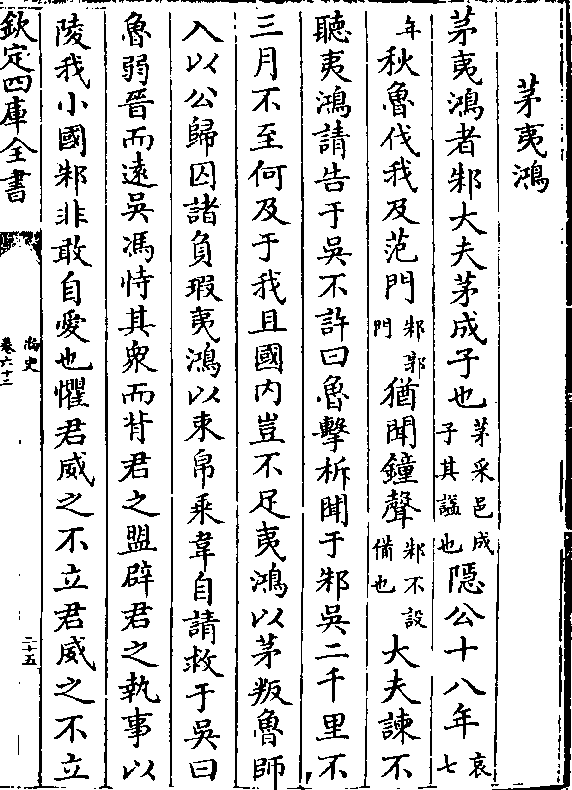 茅夷鴻
茅夷鴻者邾大夫茅成子也茅采邑成子其謚也隠公十八年哀七
年秋魯伐我及范門邾郭門猶聞鐘聲邾不設備也大夫諫不
聽夷鴻請告于吳不許曰魯擊柝聞于邾吳二千里不
三月不至何及于我且國内豈不足夷鴻以茅叛魯師
入以公歸囚諸負瑕夷鴻以束帛乘韋自請救于吳曰
魯弱晉而遠吳馮恃其衆而背君之盟辟君之執事以
陵我小國邾非敢自愛也懼君威之不立君威之不立
欽定四庫全書
尚史
卷六十三
二十五